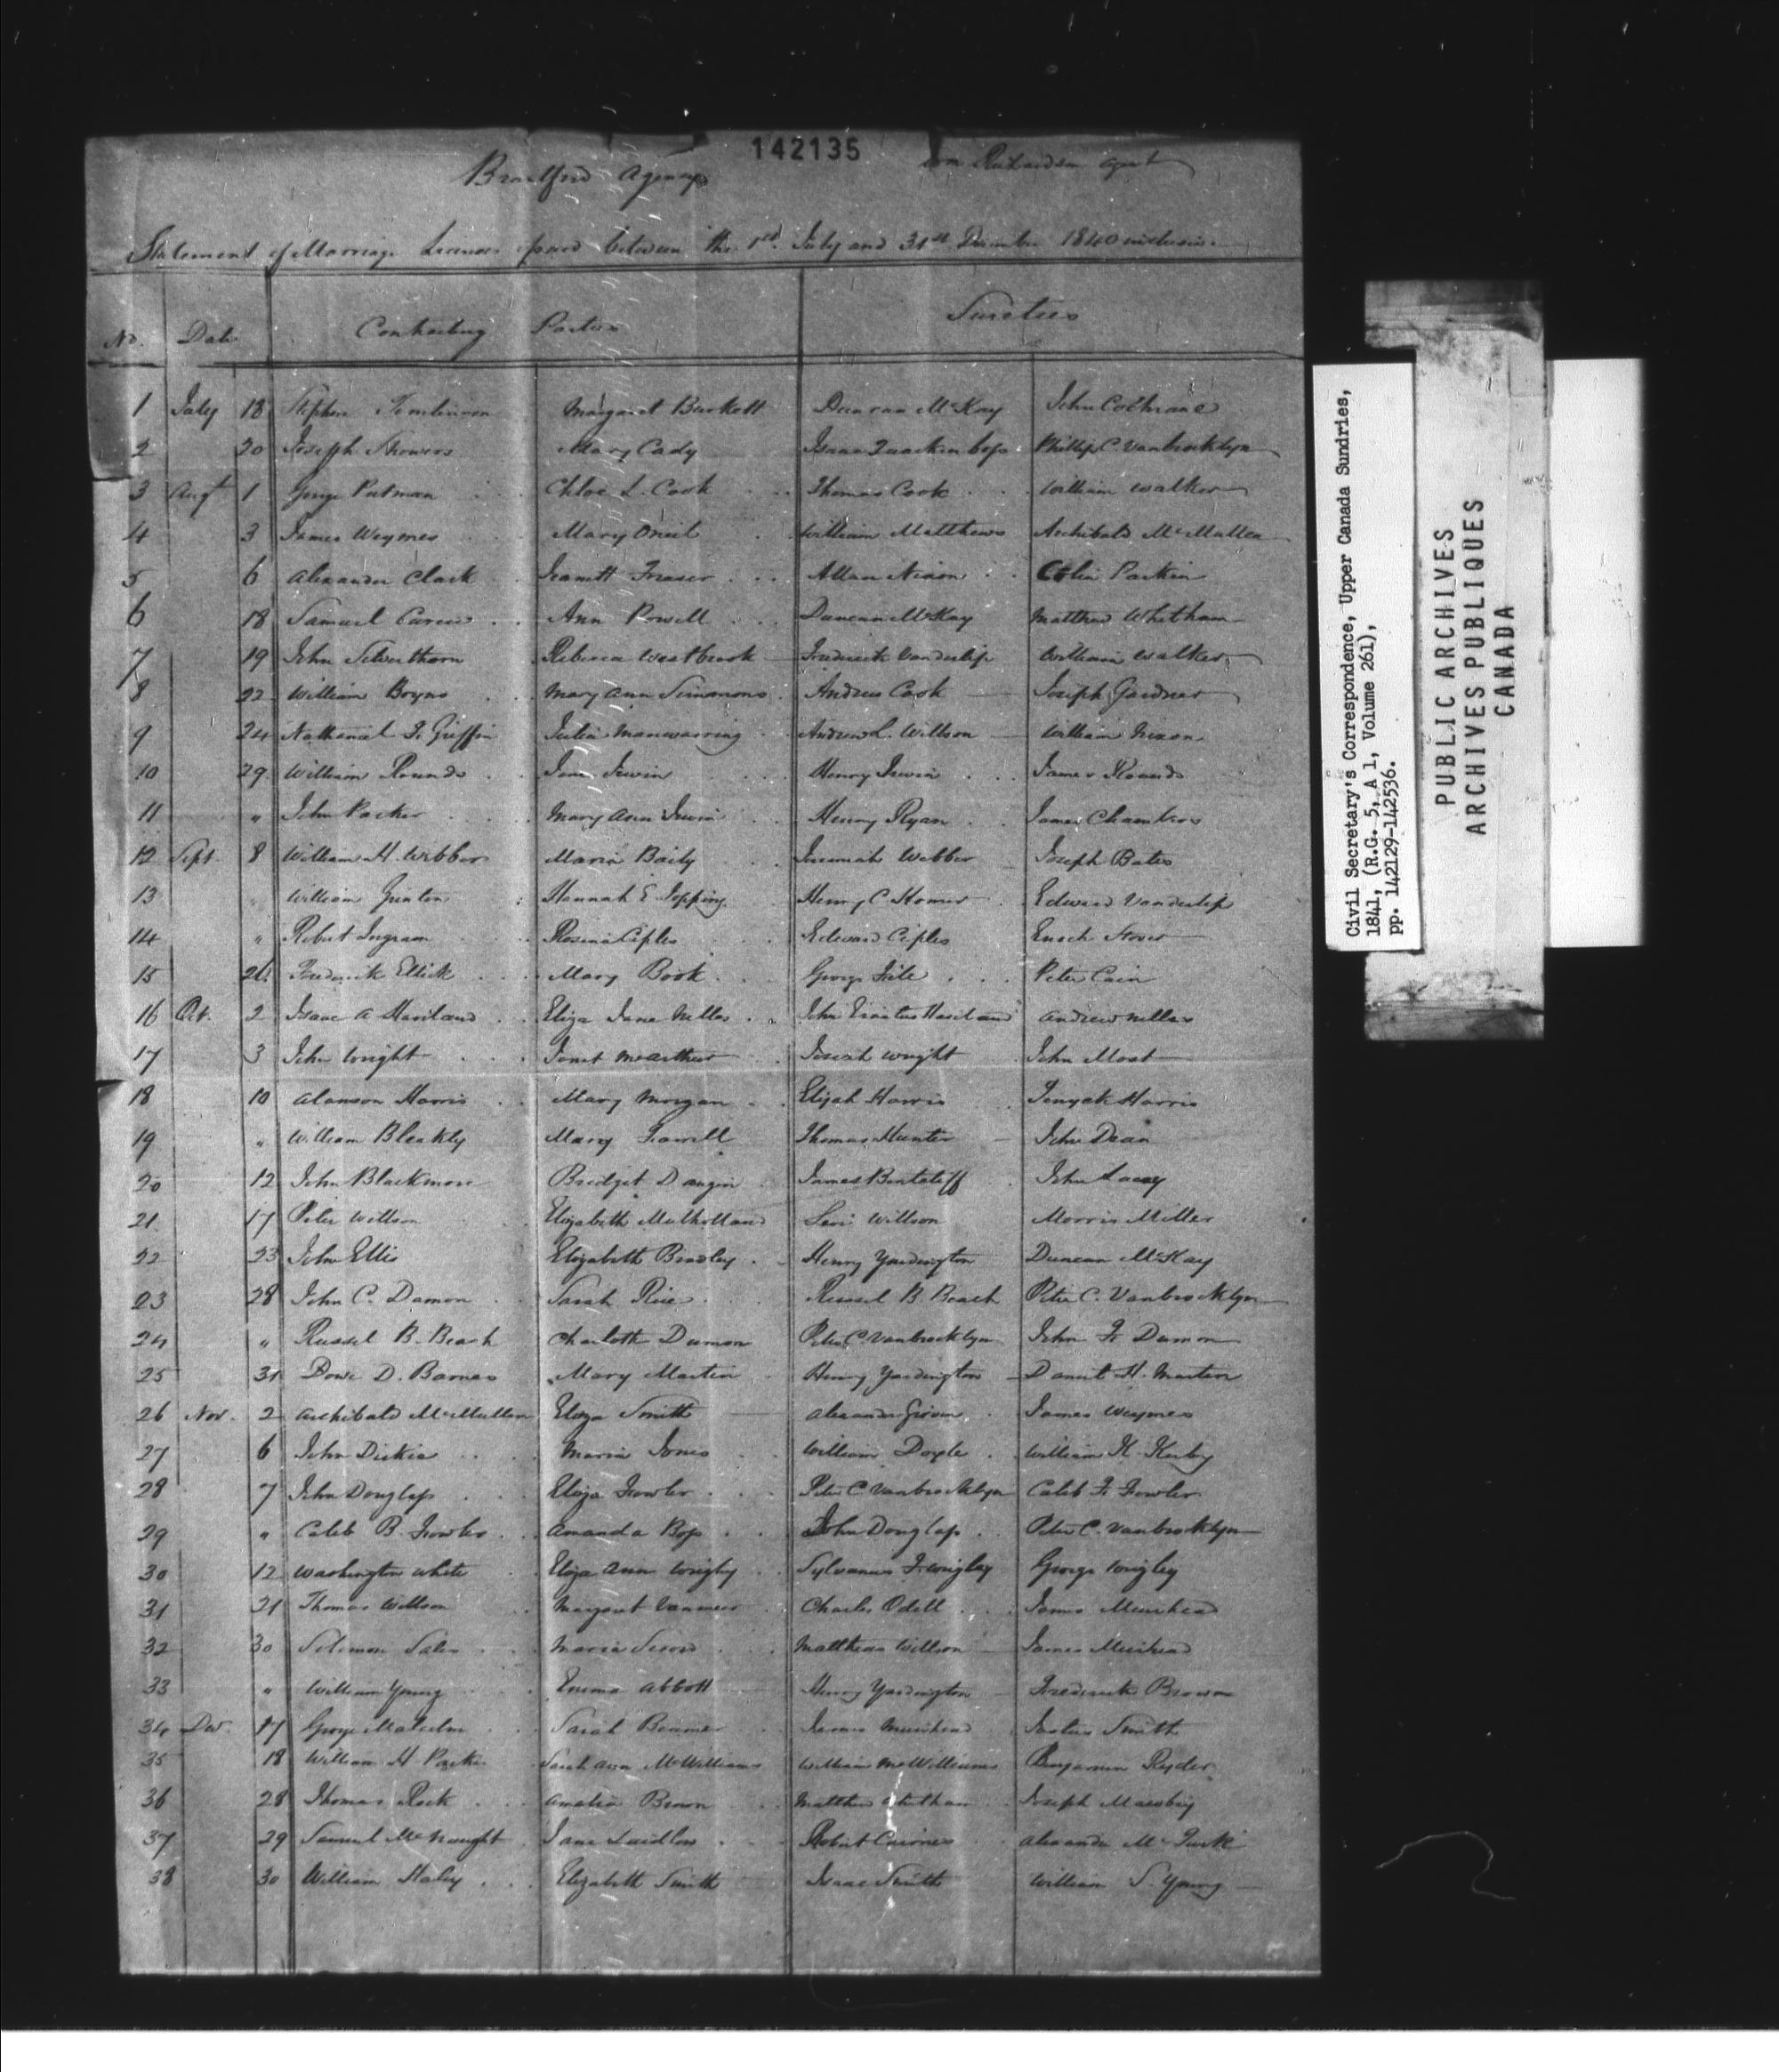 142135
Brantford Agency Wm Richardson agent
Statement of Marriage Licenses issued between the 1st July and 31st December 1840 inclusive.
No. Date Contracting Parties Sureties
1 July 18 Stephen Tomlinson Margaret Burkett Duncan McKay John Cochrane
2 20 Joseph Showers Mary Cady Isaac Quackenboss Phillip C Vanbrocklyn
3 Augt 1 George Putman Chloe L. Cook Thomas Cook William Walker
4 3 James Weymes Mary Oneil William Matthews Archibald McMullen
5 6 Alexander Clark Jennett Fraser Allan Nixon Colin Parkin
6 18 Samuel Ann Powell Duncan McKay Matthew Whitham
7 19 John Silverthorn Rebecca Westbrook Frederick Vanderlip William Walker
8 22 William Boyns Mary Ann Simmons Andrew Cook Joseph Gardner
9 24 Nathaniel F. Griffin Julia Manwarring Andrew L. Willson William Nixon
10 29 William Rounds Jane Irwin Henry Irwin James Rounds
11 " John Parker Mary Ann Irwin Henry Ryan James Chambers
12 Sept. 8 William H. Webber Maria Baily Jeremiah Webber Joseph Bates
13 " William Grinton Hannah E Topping Henry C Homer Edward Vanderlip
14 " Robert Ingram Rosina Ciples Edward Ciples Enoch Stover
15 26 Frederick Ellick Mary Book George File Peter Cain
16 Oct. 2 Isaac A Haviland Eliza Jane Nelles John Erastus Haviland Andrew Nelles
17 3 John Wright Janet McArthur Josiah Wright John Moat
18 10 Alanson Harris Mary Morgan Elijah Harris Tenyck Harris
19 " William Bleakly Mary Farrell Thomas Hunter John Dean
20 12 John Blackmore Bridget Dangin James Bentcliff John Lacey
21 17 Peter Willson Elizabeth Mulholland Levi Willson Morris Miller
22 23 John Ellis Elizabeth Bradley Henry Yardington Duncan McKay
23 28 John C. Damon Sarah Rice Russel B. Beach Peter C. Vanbrocklyn
24 " Russel B. Beach Charlotte Dumon Peter C Vanbrocklyn John F. Dumon
25 31 Dowe D. Barnes Mary Martin Henry Yardington Daniel H. Martin
26 Nov. 2 Archibald McMullen Eliza Smith Alexander Girvin James Weymes
27 6 John Dickie Maria Jones William Doyle William K. Kerby
28 7 John Douglass Eliza Fowler Peter C Vanbrocklyn Caleb F. Fowler
29 " Caleb B. Fowler Amanda Boss John Douglass Peter C. Vanbrocklyn
30 12 Washington White Eliza Ann Wrigley Sylvanus F. Wrigley George Wrigley
31 21 Thomas Willson Margaret Vanmeer Charles Odell James Muirhead
32 30 Solomon Sales Maria Matthew Willson James Muirhead
33 " William Young Emma Abbott Henry Yardington Frederick Brown
34 Dec. 17 George Malcolm Sarah Beamer James Muirhead Justus Smith
35 18 William H Parke Sarah Ann McWilliams William McWilliams Benjamin Ryder
36 28 Thomas Rock Amelia Brown Matthew Whitham Joseph
37 29 Samuel McNaught Jane Laidlow Robert Cairnes Alexander McTurk
38 30 William Haley Elizabeth Smith Isaac Smith William S. Young
Civil Secretary's Correspondence, Upper Canada Sundries,
1841, (R.G. 5, A 1, Volume 261),
pp. 142129-142536.
PUBLIC ARCHIVES
ARCHIVES PUBLIQUES
CANADA